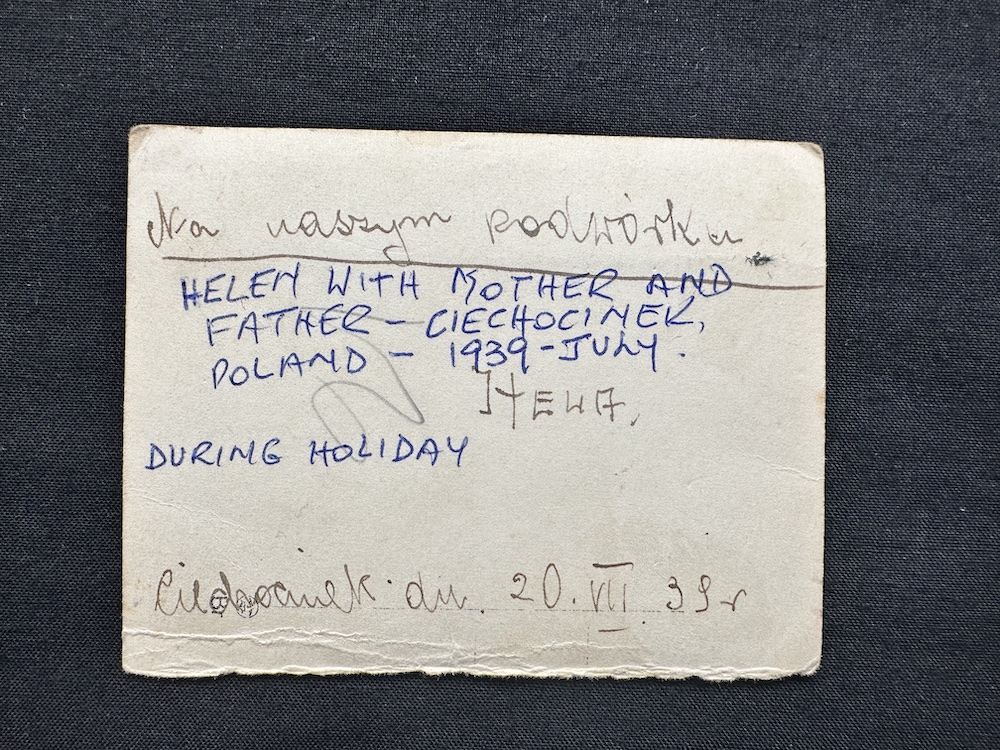 Na naszym podwórku
HELEN WITH MOTHER AND
FATHER - CIECHOCINEK,
POLAND - 1939 - JULY.
DURING HOLIDAY
Ciechocinek dn. 20. VII 39 r